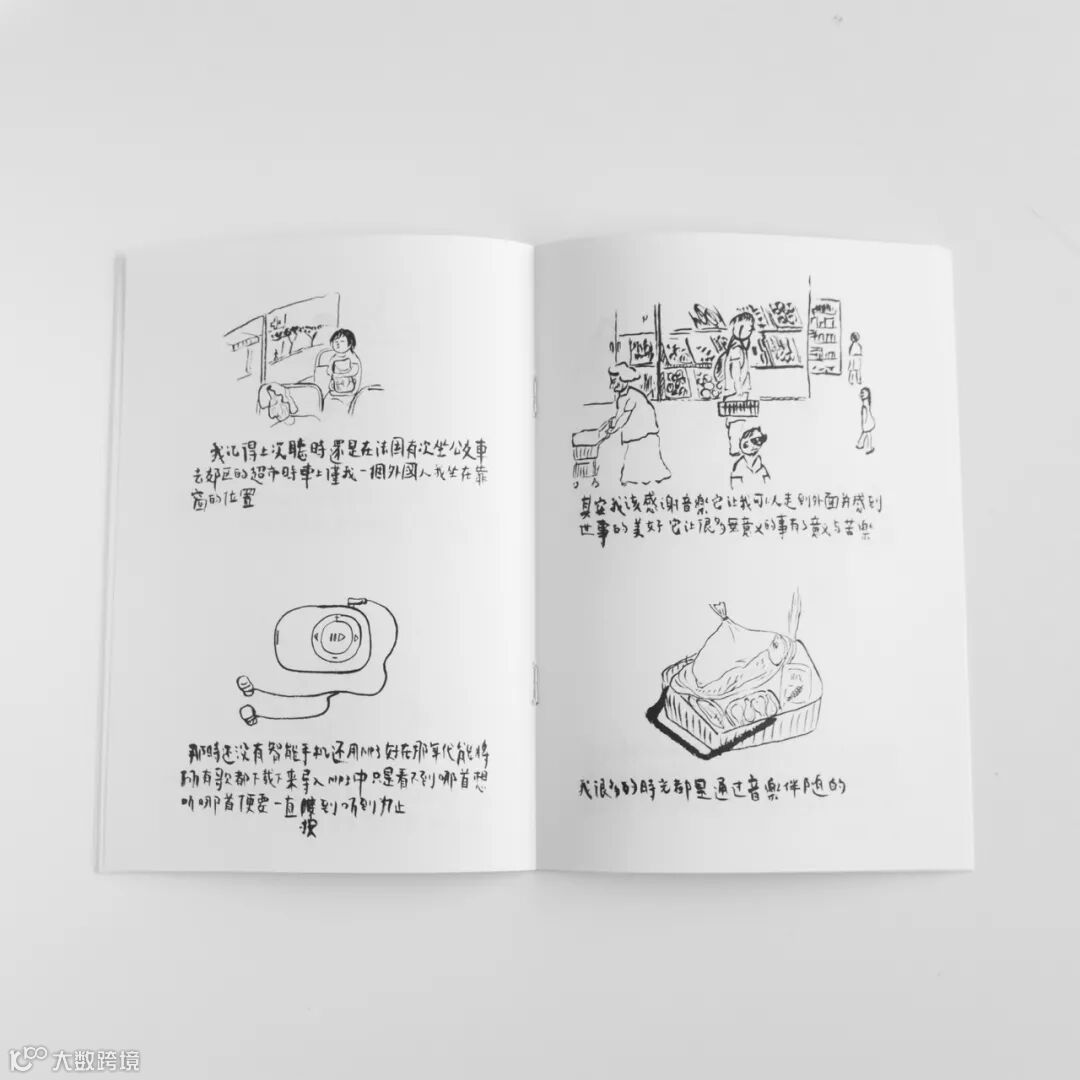 我记得上次聽時還是在法国有次坐公交車
去郊区的超市時車上僅我一個外國人我坐在靠
窗的位置
那時还没有智能手机还用mp3好在那年代能将
所有歌都下载下来导入mp3中只是看不到哪首想
听哪首便要一直 到听到为止
按
其实我该感谢音樂它让我可以走到外面并感到
世事的美好它让很多無意义的事有了意义与苦樂
我很多的時光都是通过音樂伴随的
大数跨境